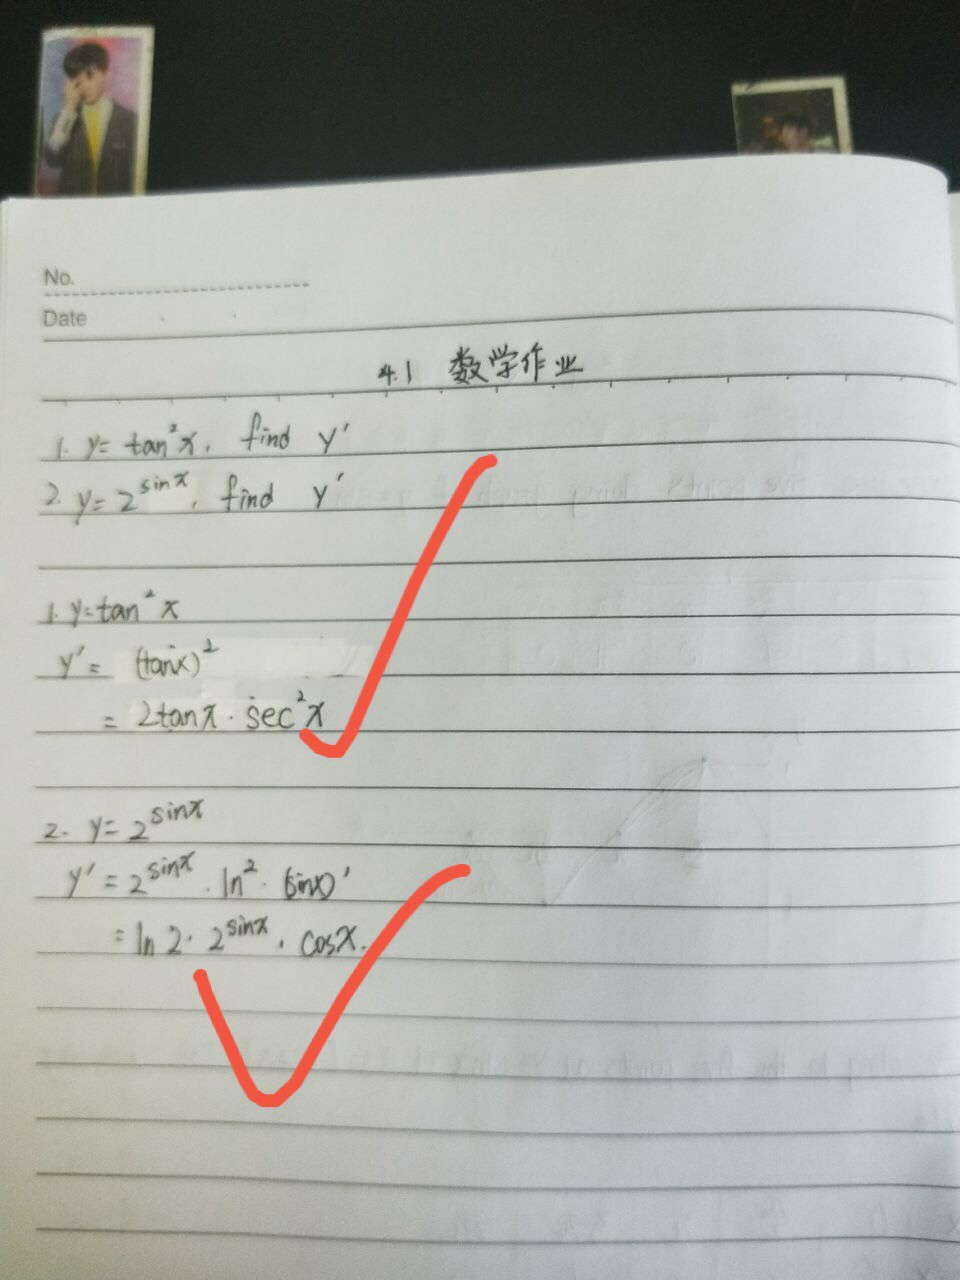 No.
Date
4.1 数学作业
1. y = tan²x. find y'
2. y = 2^sinx. find y'
1. y = tan²x
y' = (tanx)²
= 2tanx · sec²x
2. y = 2^sinx
y' = 2^sinx · ln² · (sinx)'
= ln 2 · 2^sinx · cosx.